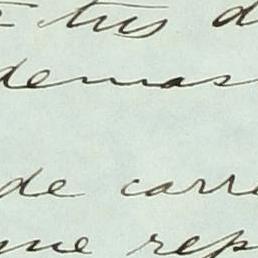 tus d
demas
de carr
que rep